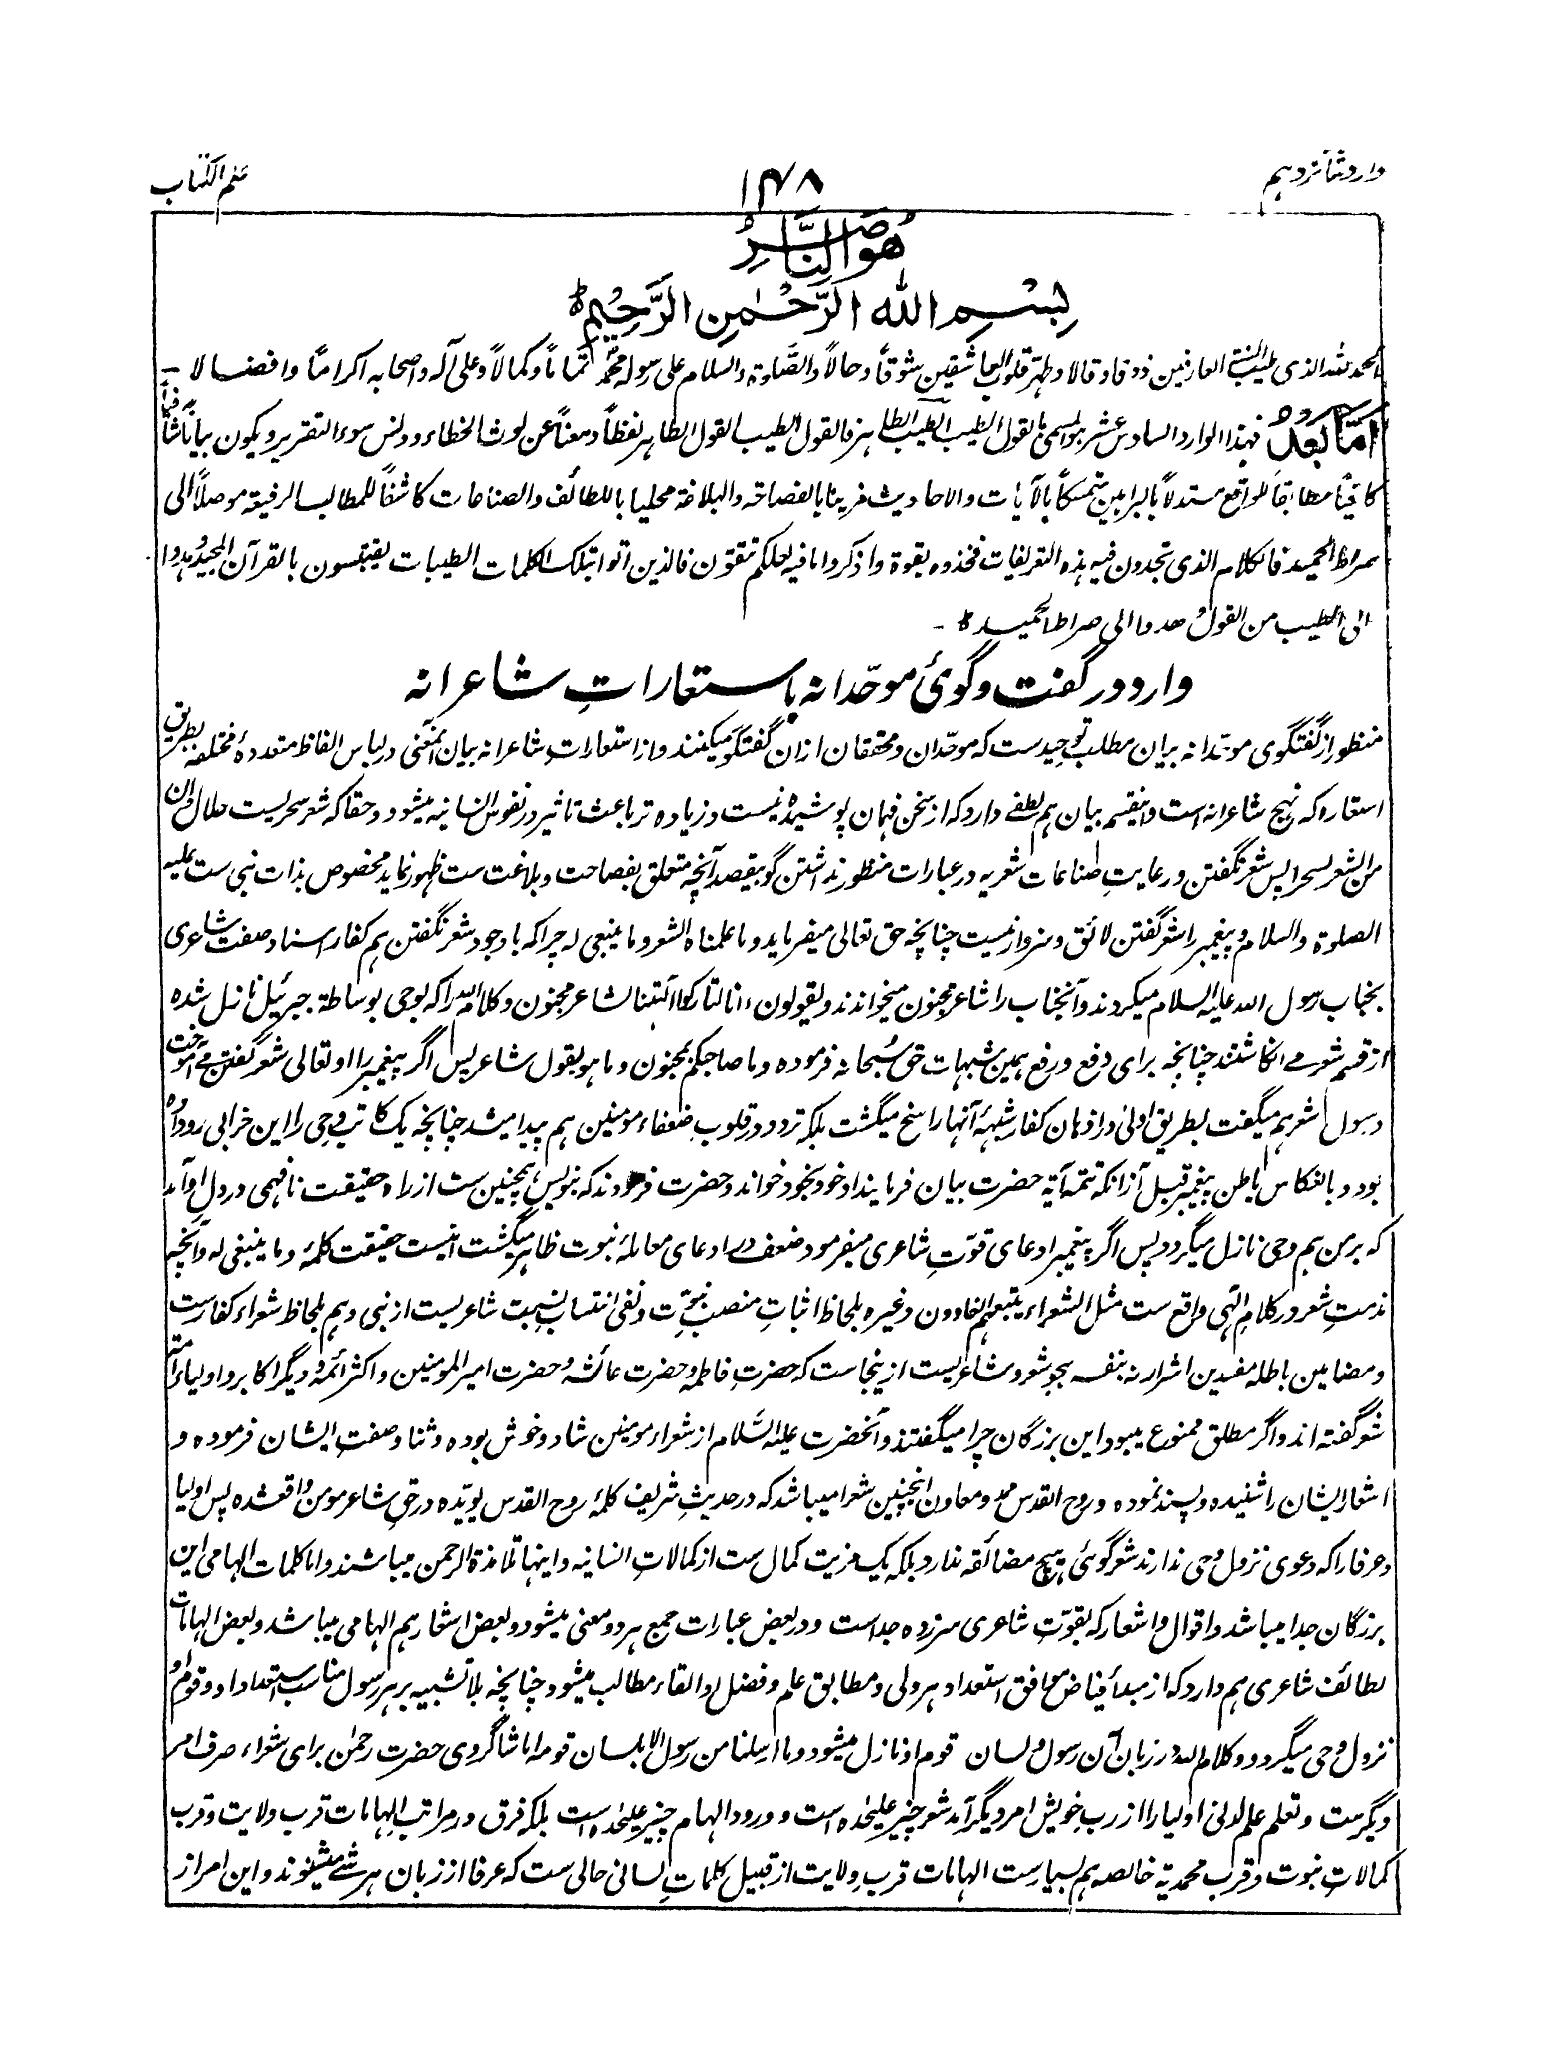 وارد شانزدهم
۱۴۸
علم الکتاب
هُوَ النَّاصِرُ
بِسْمِ اللهِ الرَّحْمٰنِ الرَّحِیْمِ ط
الحمد للہ الذی طیب السنۃ العارفین ذوقا وقالا وطهّر قلوب العاشقین شوقاً وحالاً والصّلوۃ والسلام علی رسوله محمّد اتماماً وکمالاً وعلی آله واصحابه اکراماً وافضالا ـ
اَمَّا بَعْدُ فهذا الوارد السادس عشر المسمی بالقول الطیب الطاهر فالقول الطیب القول الطاهر لفظاً ومعناً عن لوث الخطاء ودنس سوء التقریر ویکون بیاناً شافیاً به
کافیاً مطابقاً للواقع مستدلاً بالبراهین متمسکاً بالآیات والاحادیث مزینا بالفصاحة والبلاغة محلیا باللطائف والصناعات کاشفاً للمطالب الرفیعة موصلاً الی
صراط الحمید فالکلام الذی تجدون فیه هذه التعریفات فخذوه بقوة واذکروا ما فیه لعلکم تتقون فالذین اتوا بتلک الکلمات الطیبات یقتبسون بالقرآن المجید وهدوا
الی الطیب من القول وهدوا الی صراط الحمید ط ـ
وارد در گفت وگوئ موحّدانه با ستعاراتِ شاعرانه
منظور از گفتگوی موحّدانه بیان مطلب توحید ست که موحّدان ومحققان ازان گفتگو میکنند واز استعاراتِ شاعرانه بیان آنمعنی در لباس الفاظ متعددهٔ مختلفه بطریق
استعاره که نهج شاعرانه است واینقسم بیان هم لطفے دارد که از سخن فهمان پوشیده نیست وزیاده تر باعث تاثیر در نفوس انسانیه میشود وحقا که شعر سحریست حلال ان
من الشعر لسحرا پس شعر نگفتن ورعایتِ صناعات شعریه در عبارات منظور نداشتن گو بیقصد آنچه متعلق بفصاحت وبلاغت ست ظهور نماید مخصوص بذات نبی ست علیه
الصلوة والسلام وپیغمبر را شعر گفتن لائق وسزوار نیست چنانچه حق تعالی میفرماید وما علمناه الشعر وما ینبغی له چرا که باوجود شعر نگفتن هم کفار اسناد صفت شاعری
بجناب رسول اللہ علیه السلام میکردند وآنجناب را شاعر مجنون میخواندند ویقولون ءانا لتارکوا آلهتنا لشاعر مجنون وکلام اللہ را که بوحی بوساطة جبرئیل نازل شده
از قسم شعر مے انگاشتند چنانچه برای دفع ورفع همین شبهات حق سبحانه فرموده وما صاحبکم بمجنون وما هو بقول شاعر پس اگر پیغمبر را او تعالی شعر گفتن مے آموخت
رسول شعر هم میگفت بطریق اولی در اذهان کفار شبهۀ آنها راسخ میگشت بلکه تردد در قلوب ضعفاء مومنین هم پیدا میشد چنانچه یک کاتب وحی را این خرابی روداده
بود وبانعکاس باطن پیغمبر قبل ازانکه تتمه آیة حضرت بیان فرمایند او خود بخود خواند وحضرت فرمودند که بنویس همچنین ست از راه حقیقت نافهمی در دل او آمد
که بر من هم وحی نازل میگردد پس اگر پیغمبر ادعای قوّتِ شاعری میفرمود ضعف در ادعای معاملۀ نبوت ظاهر میگشت اینست حقیقت کلمۀ وما ینبغی له وآنچه
مذمتِ شعر در کلام الٰهی واقع ست مثل الشعراء یتبعهم الغاوون وغیره بلحاظ اثباتِ منصبِ نبوّت ونفی انتساب نسبت شاعریست از نبی وهم بلحاظ شعراء کفارست
ومضامین باطله مفسدین اشرار نه بنفسه بهجو شعر وشاعریست ازینجاست که حضرتِ فاطمه وحضرت عائشه وحضرت امیر المومنین واکثر ائمه ودیگر اکابر واولیاء امت
شعر گفته اند واگر مطلق ممنوع میبود این بزرگان چرا میگفتند وآنحضرت علیه السّلام از شعراء مومنین شاد وخوش بوده وثنا وصفتِ ایشان فرموده و
اشعار ایشان را شنیده وپسند نموده وروح القدس ممد ومعاون اینچنین شعرا میباشد که در حدیثِ شریف کلمۀ روح القدس یویّده در حقِ شاعر مومن واقعشده پس اولیا
وعرفا را که دعوی نزول وحی ندارند شعر گوئی هیچ مضائقه ندارد بلکه یک مزیت کمال ست از کمالاتِ انسانیه واینها تلامذة الرحمن میباشند واما کلمات الهامی این
بزرگان جدا میباشد واقوال واشعار که بقوّتِ شاعری سرزده جداست ودر بعض عبارات جمع هر دو معنی میشود وبعض اشعار هم الهامی میباشد وبعض الهامات
لطائف شاعری هم دارد که از مبدأ فیاض موافق استعداد هر ولی ومطابق علم وفضل او القاء مطالب میشود چنانچه بلا تشبیه بر هر رسول مناسب استعداد او وقوم او
نزول وحی میگردد وکلام اللہ در زبان آن رسول ولسان قوم او نازل میشود وما ارسلنا من رسول الا بلسان قومه اما شاگردی حضرت رحمٰن برای شعراء صرف امر
دیگرست وتعلم علم لدنی اولیا را از رب خویش امر دیگر آمد شعر چیز علیحده است وورود الهام چیز علیحده است بلکه فرق در مراتب الهامات قرب ولایت وقرب
کمالاتِ نبوت وقرب محمدیّه خالصه هم بسیارست الهامات قربِ ولایت از قبیل کلماتِ لسانی حالی ست که عرفا از زبان هر شے میشنوند واین امر از